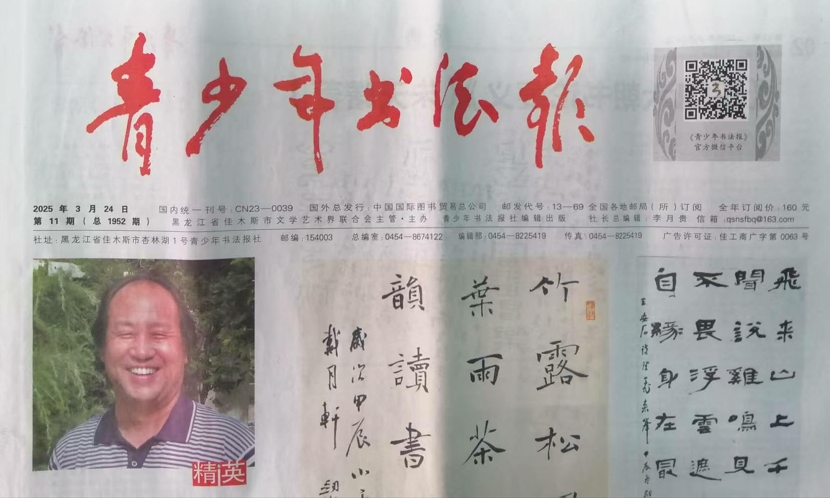 青少年书法报
《青少年书法报》
官方微信平台
2025 年 3 月 24 日 国内统一刊号:CN23—0039 国外总发行:中国国际图书贸易总公司 邮发代号:13—69 全国各地邮局(所)订阅 全年订阅价:160 元
第 11 期(总 1952 期) 黑龙江省佳木斯市文学艺术界联合会主管·主办 青少年书法报社编辑出版 社长总编辑:李月贵 信箱:qsnsfbq@163.com
社址:黑龙江省佳木斯市杏林湖1号青少年书法报社 邮编:154003 总编室:0454—8674122 编辑部:0454—8225419 传真:0454—8225419 广告许可证:佳工商广字第0063号
精英
竹露松
葉雨茶
韻讀書
歲次甲辰小
戴月軒
飛来山上千
聞說雞鳴見
不畏浮雲遮
自緣身在最
王安石詩登飛来峰